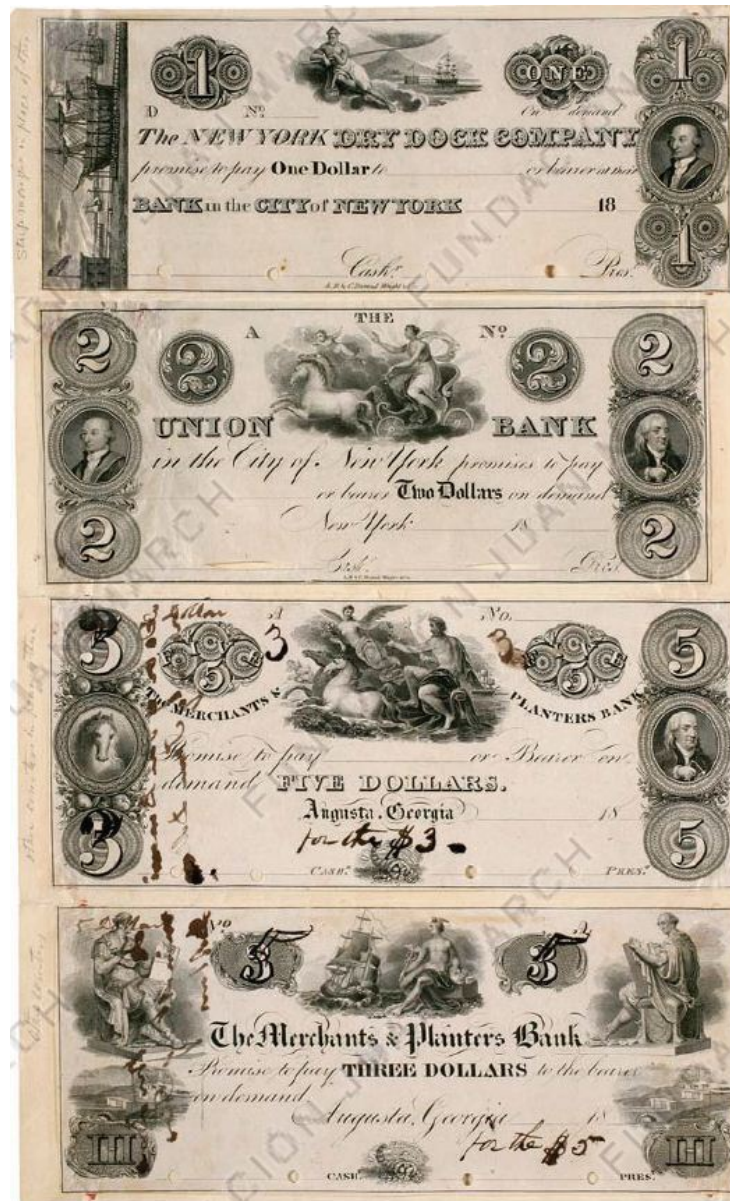 1 ONE 1
D No. On demand
The NEW YORK DRY DOCK COMPANY
promise to pay One Dollar to or bearer at their
BANK in the CITY of NEW YORK 18
1
Cashr. Pres.
THE
2 A 2 No. 2 2
UNION BANK
in the City of New York promises to pay
or bearer Two Dollars on demand
New York 18
2 2
Cashr. Pres.
3 Dollar A No.
3 5 3 3 5 5
The MERCHANTS & PLANTERS BANK
Promise to pay or Bearer on
demand FIVE DOLLARS.
Augusta, Georgia 18
3 for the $3 5
CASHR. PREST.
No
5 5
The Merchants & Planters Bank
Promise to pay THREE DOLLARS to the bearer
on demand
Augusta, Georgia 18
III for the $5 III
CASHR. PREST.
FUNDACIÓN JUAN MARCH